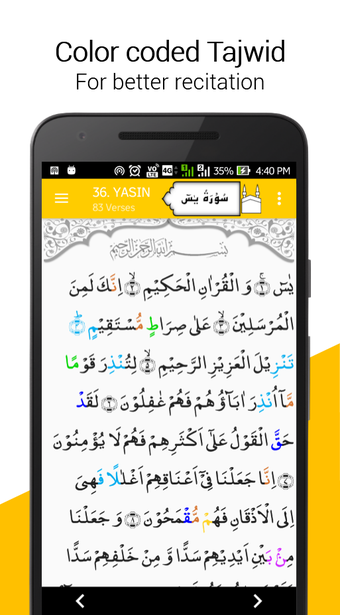 Color coded Tajwid
For better recitation
VO LTE 4G 1 2 35% 4:40 PM
36. YASIN
83 Verses
سُوْرَةُ يٰسٓ
بِسْمِ اللّٰهِ الرَّحْمٰنِ الرَّحِيْمِ
يٰسٓ ۝١ وَ الْقُرْاٰنِ الْحَكِيْمِ ۝٢ اِنَّكَ لَمِنَ
الْمُرْسَلِيْنَ ۝٣ عَلٰى صِرَاطٍ مُّسْتَقِيْمٍ ۝٤
تَنْزِيْلَ الْعَزِيْزِ الرَّحِيْمِ ۝٥ لِتُنْذِرَ قَوْمًا
مَّاۤ اُنْذِرَ اٰبَآؤُهُمْ فَهُمْ غٰفِلُوْنَ ۝٦ لَقَدْ
حَقَّ الْقَوْلُ عَلٰٓى اَكْثَرِهِمْ فَهُمْ لَا يُؤْمِنُوْنَ
۝٧ اِنَّا جَعَلْنَا فِيْٓ اَعْنَاقِهِمْ اَغْلٰلًا فَهِيَ
اِلَى الْاَذْقَانِ فَهُمْ مُّقْمَحُوْنَ ۝٨ وَ جَعَلْنَا
مِنْۢ بَيْنِ اَيْدِيْهِمْ سَدًّا وَّ مِنْ خَلْفِهِمْ سَدًّا